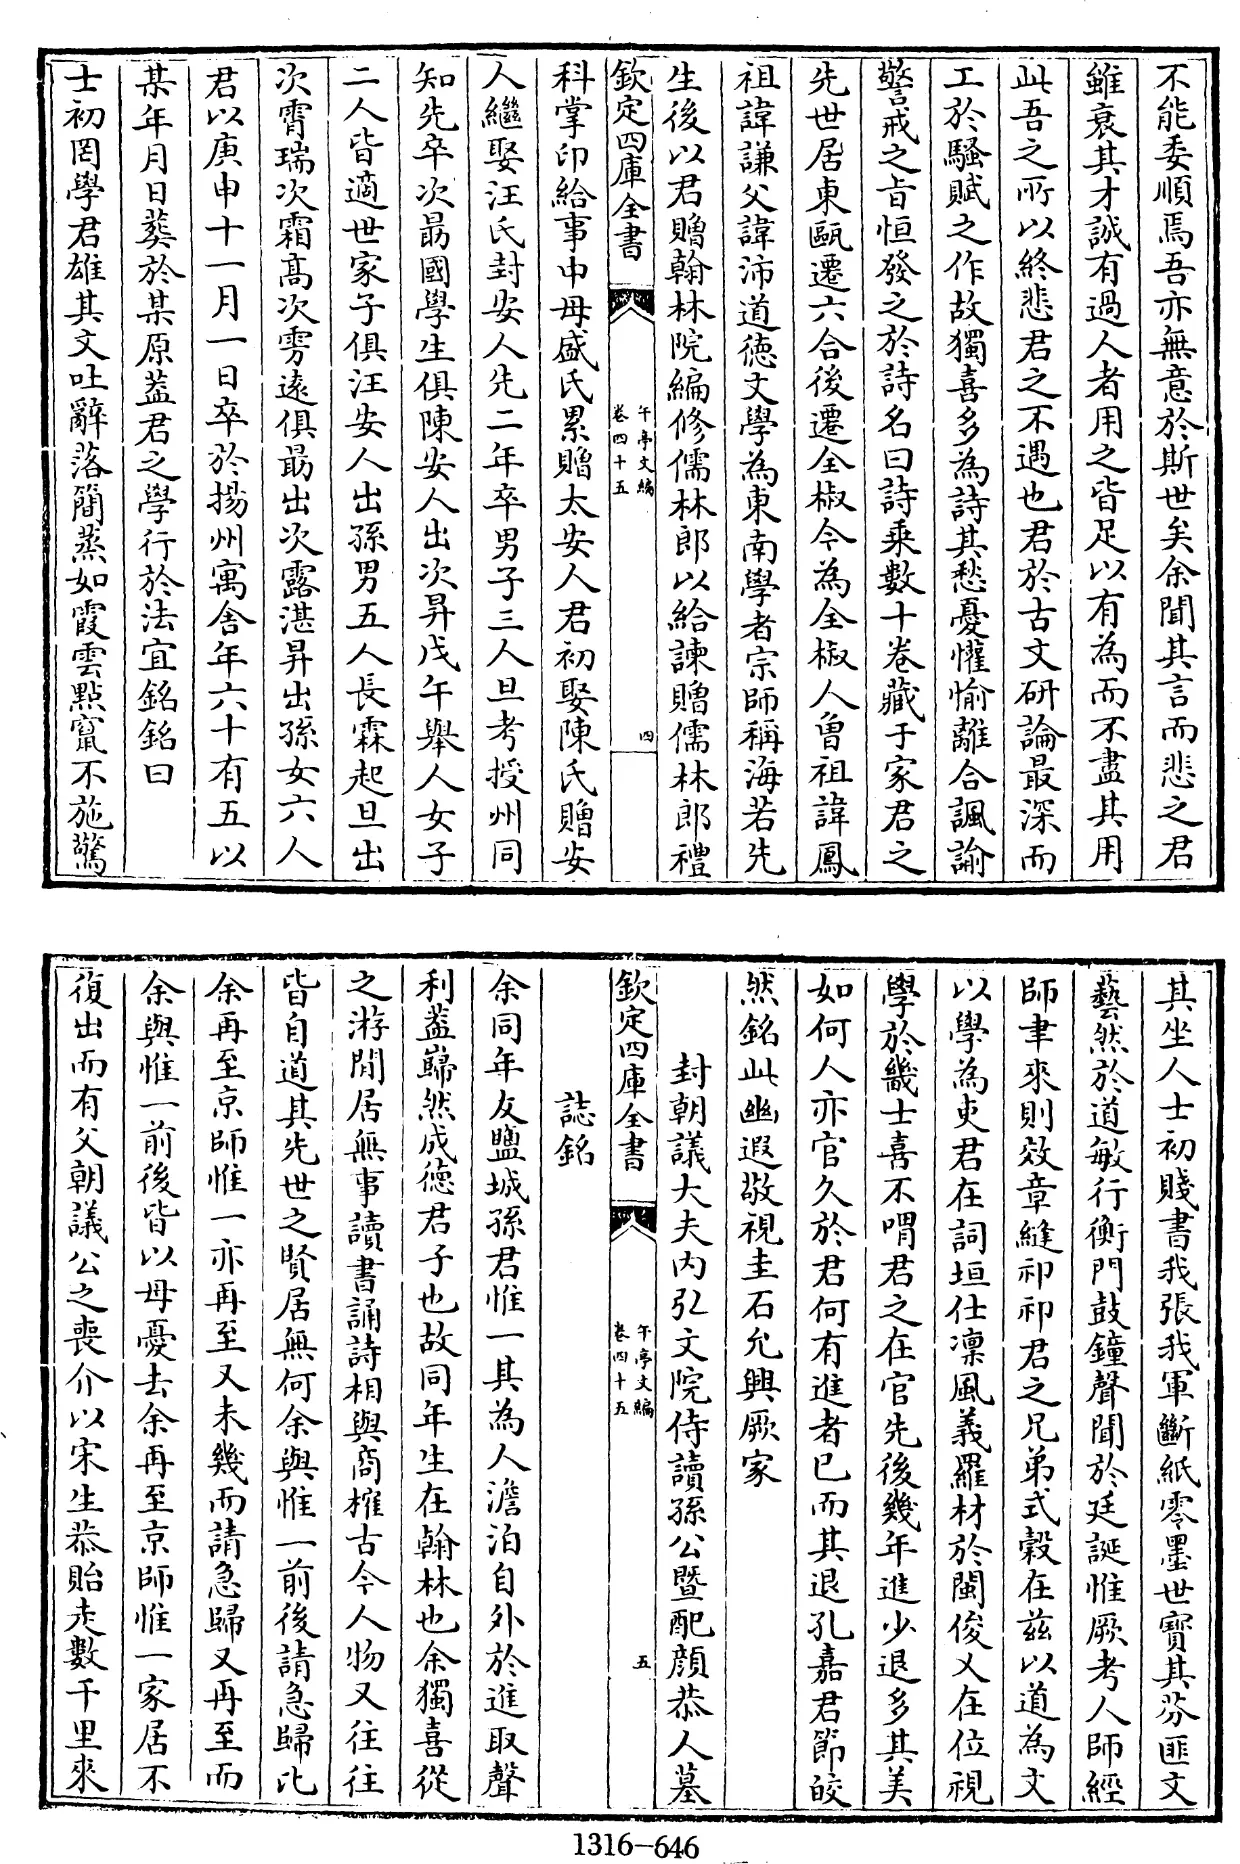 不能委順焉吾亦無意於斯世矣余聞其言而悲之君
雖衰其才誠有過人者用之皆足以有為而不盡其用
此吾之所以終悲君之不遇也君於古文研論最深而
工於騷賦之作故獨喜多為詩其愁憂懽愉離合諷諭
警戒之旨恒發之於詩名曰詩乘數十卷藏于家君之
先世居東甌遷六合後遷全椒今為全椒人曾祖諱鳳
祖諱謙父諱沛道徳文學為東南學者宗師稱海若先
生後以君贈翰林院編修儒林郎以給諫贈儒林郎禮
欽定四庫全書
午亭文編
卷四十五
四
科掌印給事中母盛氏累贈太安人君初娶陳氏贈安
人繼娶汪氏封安人先二年卒男子三人旦考授州同
知先卒次勗國學生俱陳安人出次昇戊午舉人女子
二人皆適世家子俱汪安人出孫男五人長霖起旦出
次霱瑞次霜髙次雱遠俱勗出次露湛昇出孫女六人
君以庚申十一月一日卒於揚州寓舎年六十有五以
某年月日葬於某原葢君之學行於法宜銘銘曰
士初罔學君雄其文吐辭落簡蒸如霞雲點竄不施驚
其坐人士初賤書我張我軍斷紙零墨世寳其芬匪文
藝然於道敏行衡門鼓鐘聲聞於廷誕惟厥考人師經
師聿來則效章縫祁祁君之兄弟式榖在兹以道為文
以學為吏君在詞垣仕凜風義羅材於閩俊乂在位視
學於畿士喜不喟君之在官先後幾年進少退多其美
如何人亦官久於君何有進者已而其退孔嘉君節皎
然銘此幽遐敬視圭石允興厥家
封朝議大夫内弘文院侍讀孫公暨配顔恭人墓
欽定四庫全書
午亭文編
卷四十五
五
誌銘
余同年友鹽城孫君惟一其為人澹泊自外於進取聲
利葢巋然成徳君子也故同年生在翰林也余獨喜從
之游閒居無事讀書誦詩相與商榷古今人物又往往
皆自道其先世之賢居無何余與惟一前後請急歸比
余再至京師惟一亦再至又未幾而請急歸又再至而
余與惟一前後皆以母憂去余再至京師惟一家居不
復出而有父朝議公之喪介以宋生恭貽走數千里來
1316-646